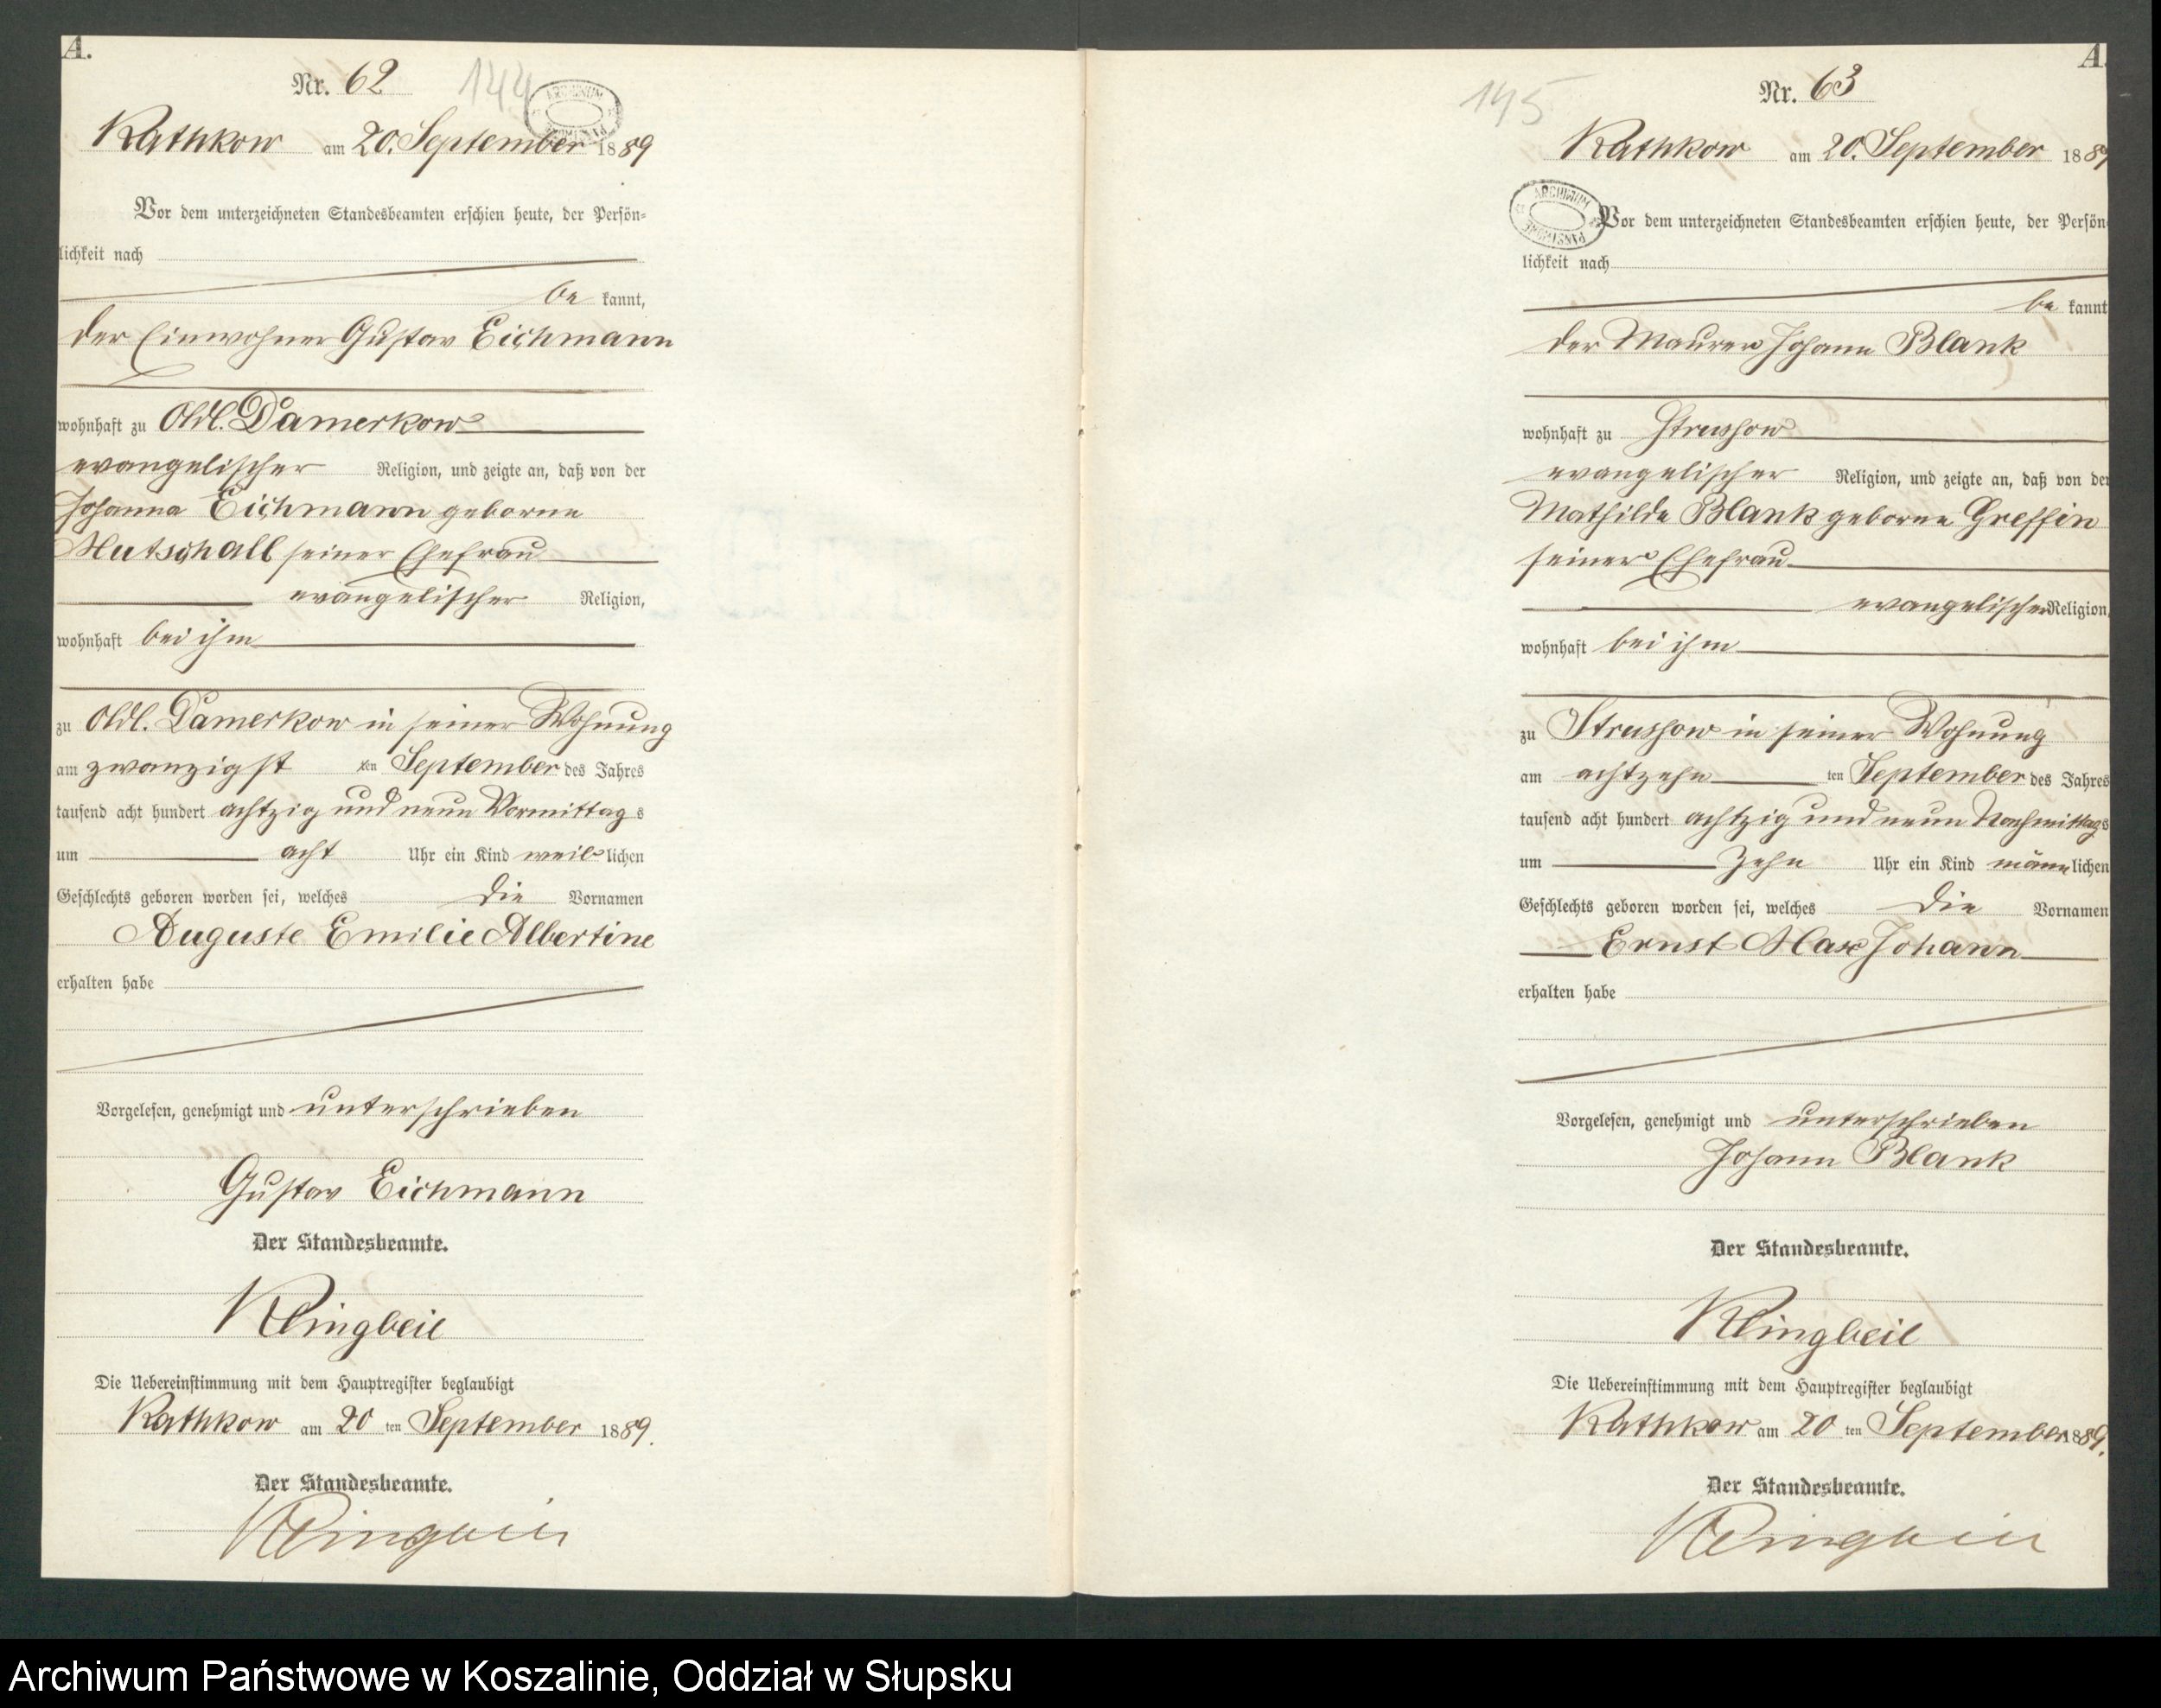 A.
Nr. 62
144
ARCHIWUM PAŃSTWOWE
Rathkow am 20. September 1889
Vor dem unterzeichneten Standesbeamten erschien heute, der Persön-
lichkeit nach
be kannt,
der Einwohner Gustav Eichmann
wohnhaft zu Adl. Damerkow
evangelischer Religion, und zeigte an, daß von der
Johanna Eichmann geborne
Mutschall seiner Ehefrau
evangelischer Religion,
wohnhaft bei ihm
zu Adl. Damerkow in seiner Wohnung
am zwanzigst ten September des Jahres
tausend acht hundert achtzig und neun Vormittags
um acht Uhr ein Kind weiblichen
Geschlechts geboren worden sei, welches die Vornamen
Auguste Emilie Albertine
erhalten habe
Vorgelesen, genehmigt und unterschrieben
Gustav Eichmann
Der Standesbeamte.
Klingbeil
Die Uebereinstimmung mit dem Hauptregister beglaubigt
Rathkow am 20 ten September 1889.
Der Standesbeamte.
Klingbeil
A.
Nr. 63
145
Rathkow am 20. September 1889
ARCHIWUM PAŃSTWOWE
Vor dem unterzeichneten Standesbeamten erschien heute, der Persön
lichkeit nach
be kannt
der Maurer Johann Blank
wohnhaft zu Strussow
evangelischer Religion, und zeigte an, daß von der
Mathilde Blank geborne Greffin
seiner Ehefrau
evangelischer Religion,
wohnhaft bei ihm
zu Strussow in seiner Wohnung
am achtzehn ten September des Jahres
tausend acht hundert achtzig und neun Nachmittags
um zehn Uhr ein Kind männlichen
Geschlechts geboren worden sei, welches die Vornamen
Ernst Max Johann
erhalten habe
Vorgelesen, genehmigt und unterschrieben
Johann Blank
Der Standesbeamte.
Klingbeil
Die Uebereinstimmung mit dem Hauptregister beglaubigt
Rathkow am 20 ten September 1889.
Der Standesbeamte.
Klingbeil
Archiwum Państwowe w Koszalinie, Oddział w Słupsku